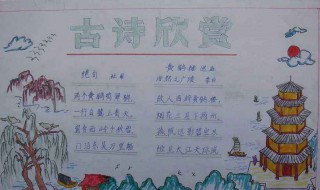 古诗欣赏
绝句 杜甫
两个黄鹂鸣翠柳
一行白鹭上青天
窗含西岭千秋雪
门泊东吴万里船
黄鹤楼送孟
浩然之广陵 李白
故人西辞黄鹤楼
烟花三月下扬州
孤帆远影碧空尽
唯见长江天际流